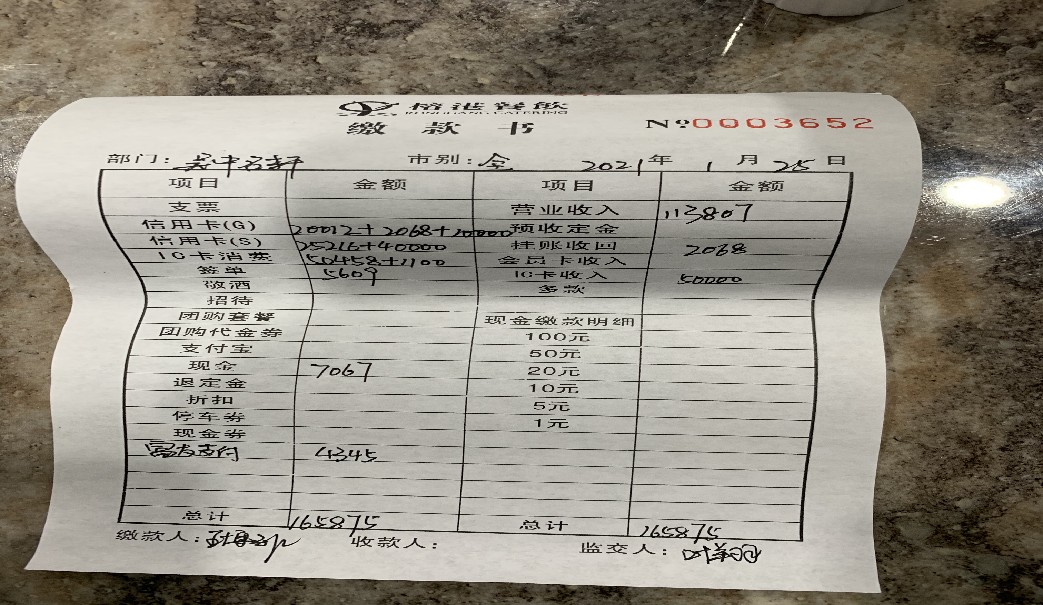 榕港餐飲
CATERING
缴款书 Nº0003652
部门: 市别:全 2021年1月25日
项目 金额 项目 金额
支票 营业收入 113807
信用卡(G) 20012+2068+10000 预收定金
信用卡(S) 25216+40000 挂账收回 2068
IC卡消费 50458+1100 会员卡收入
签单 5609 IC卡收入 50000
敬酒 多款
招待
团购套餐 现金缴款明细
团购代金券 100元
支付宝 50元
现金 7067 20元
退定金 10元
折扣 5元
停车券 1元
现金券
富友支付 4345
总计 165875 总计 165875
缴款人: 收款人: 监交人: